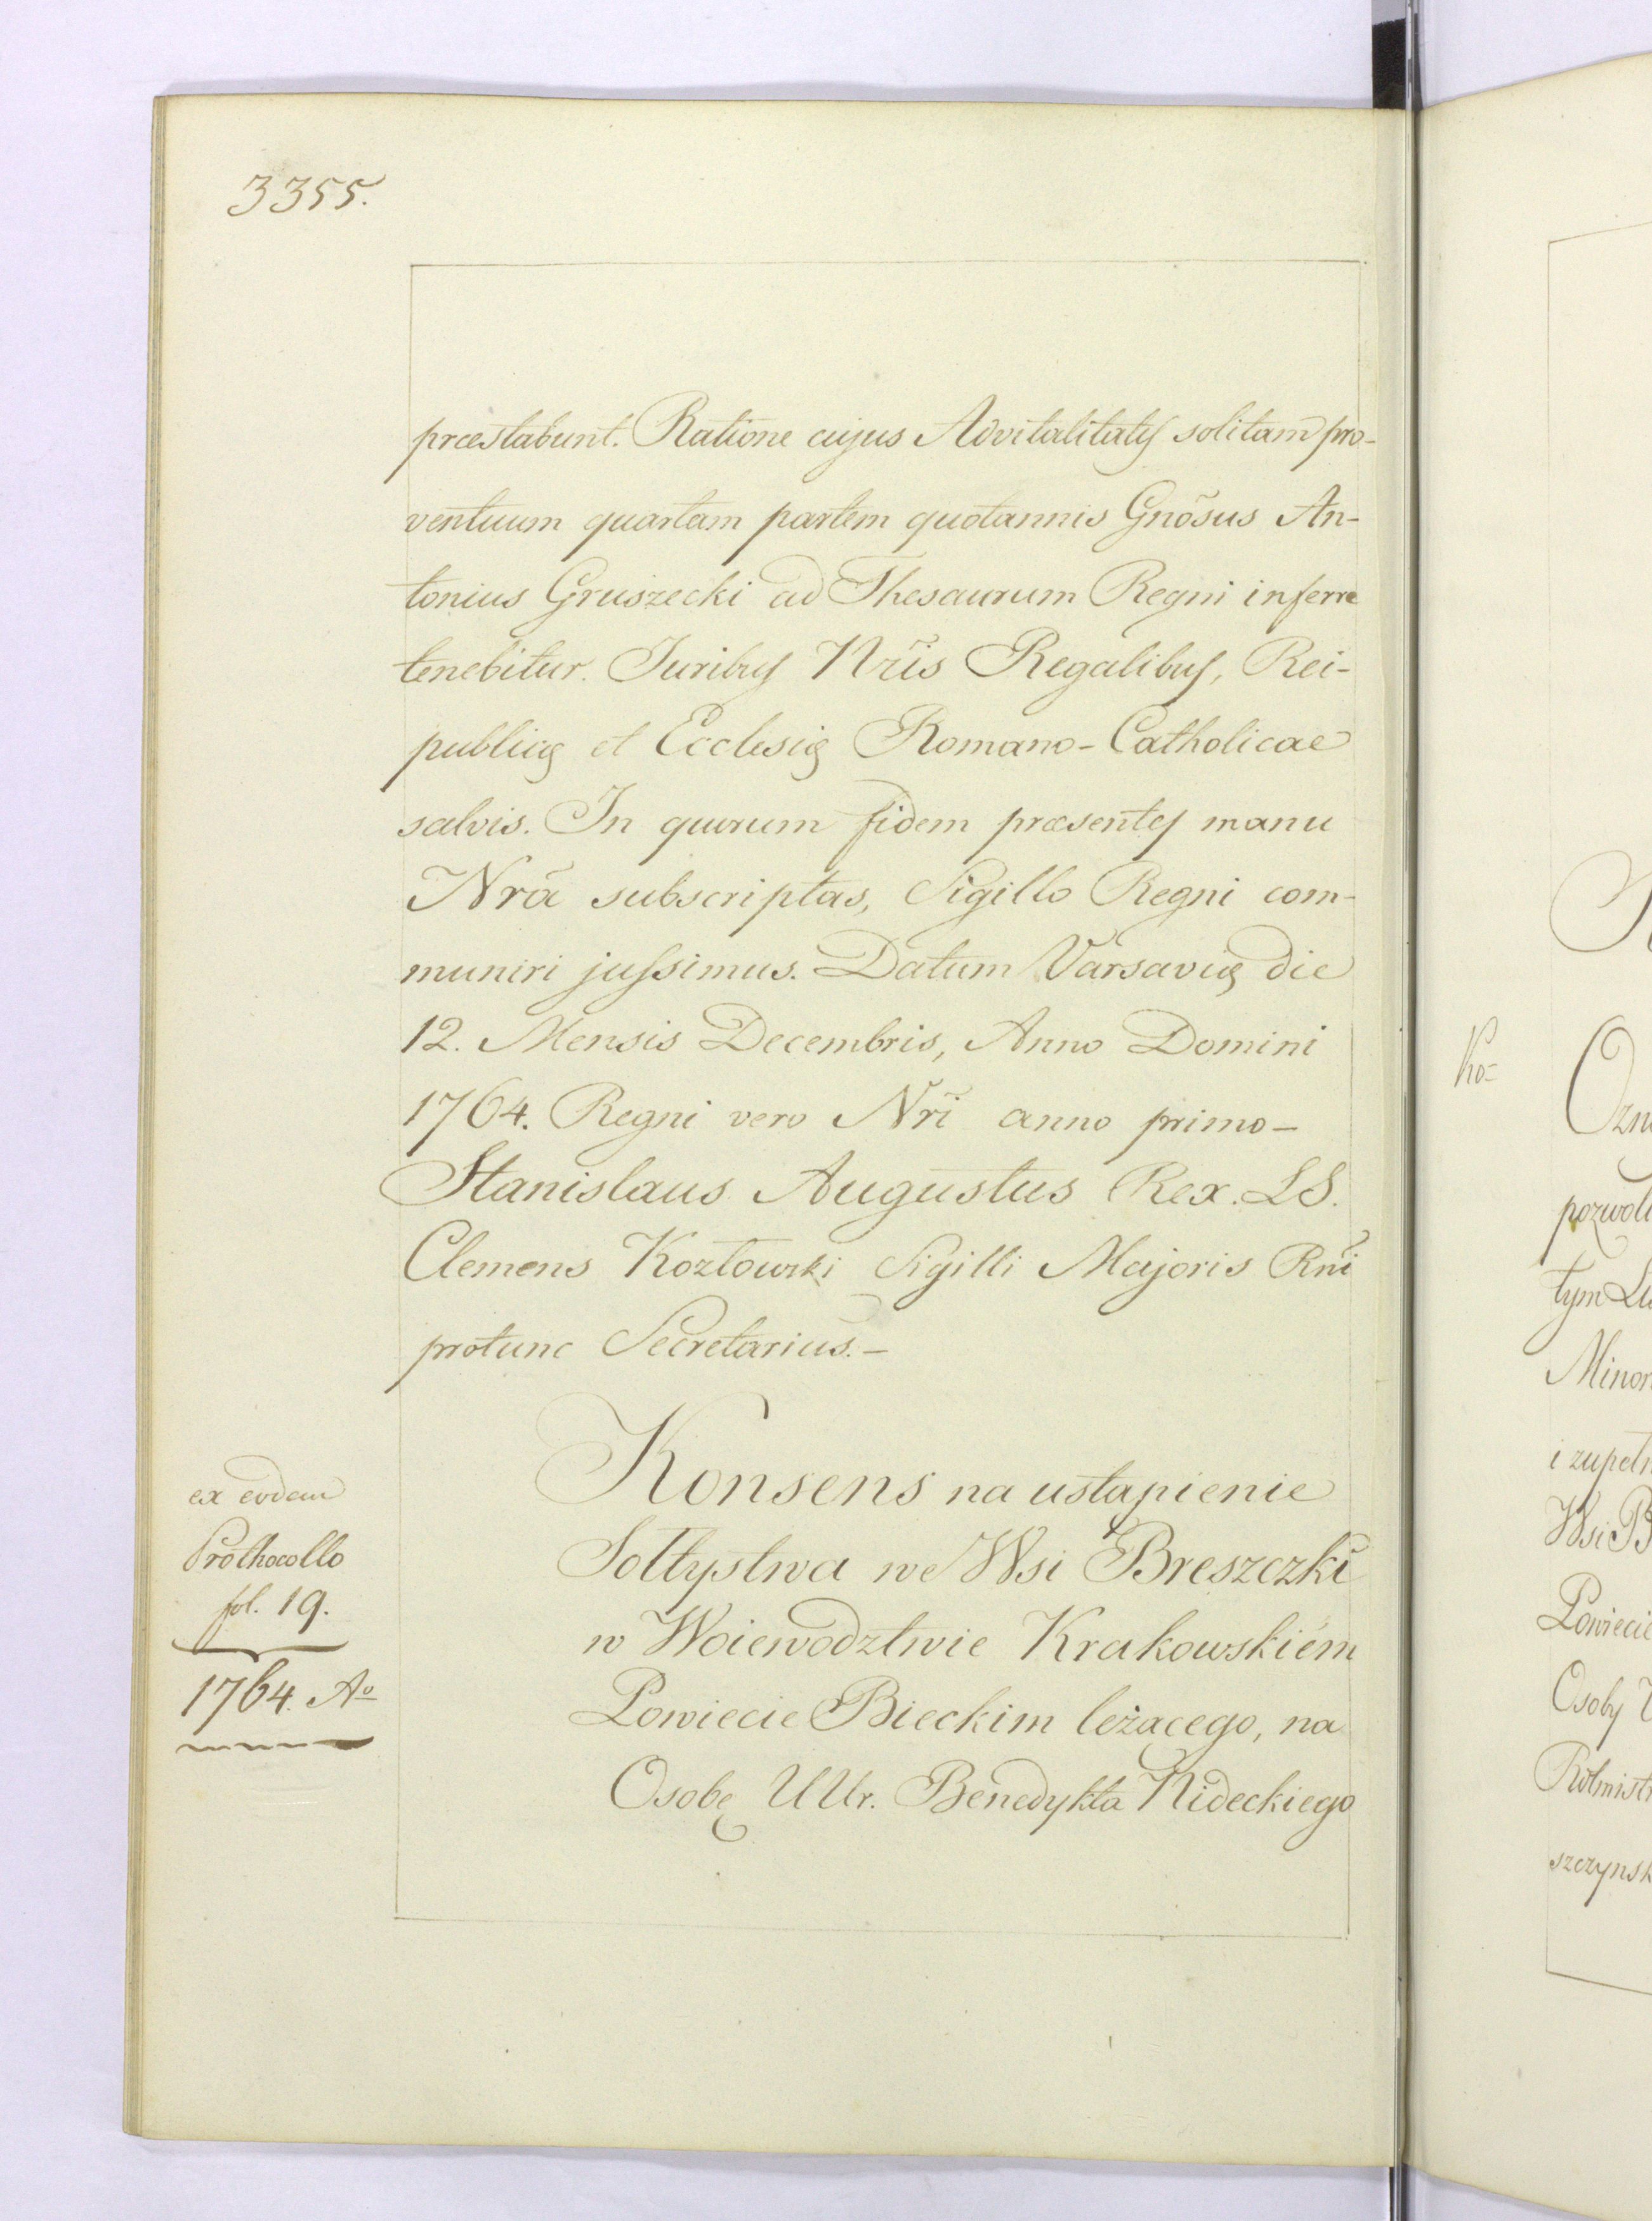 3355.
præstabunt. Ratione cujus Advitalitatis solitam pro-
ventuum quartam partem quotannis Gnõsus An-
tonius Gruszecki ad Thesaurum Regni inferre
tenebitur. Juribus Nr̃is Regalibus, Rei-
publicę et Ecclesię Romano-Catholicae
salvis. In quorum fidem præsentes manu
Nrã subscriptas, Sigillo Regni com-
muniri jussimus. Datum Varsavię die
12. Mensis Decembris, Anno Domini
1764. Regni vero Nr̃i anno primo –
Stanislaus Augustus Rex. LS.
Clemens Kozłowski Sigilli Majoris Rñi
protunc Secretarius. –
ex eodem
Prothocollo
fol. 19.
1764. Aº
Konsens na ustąpienie
Sołtystwa we Wsi Breszczki
w Woiewodztwie Krakowskiém
Powiecie Bieckim leżącego, na
Osobę UUr. Benedykta Nideckiego
Ko-
pozwoli
tym Lu
Minor
i zupełn
Wsi B
Powiecie
Osoby U
Rotmistr
szczynsk